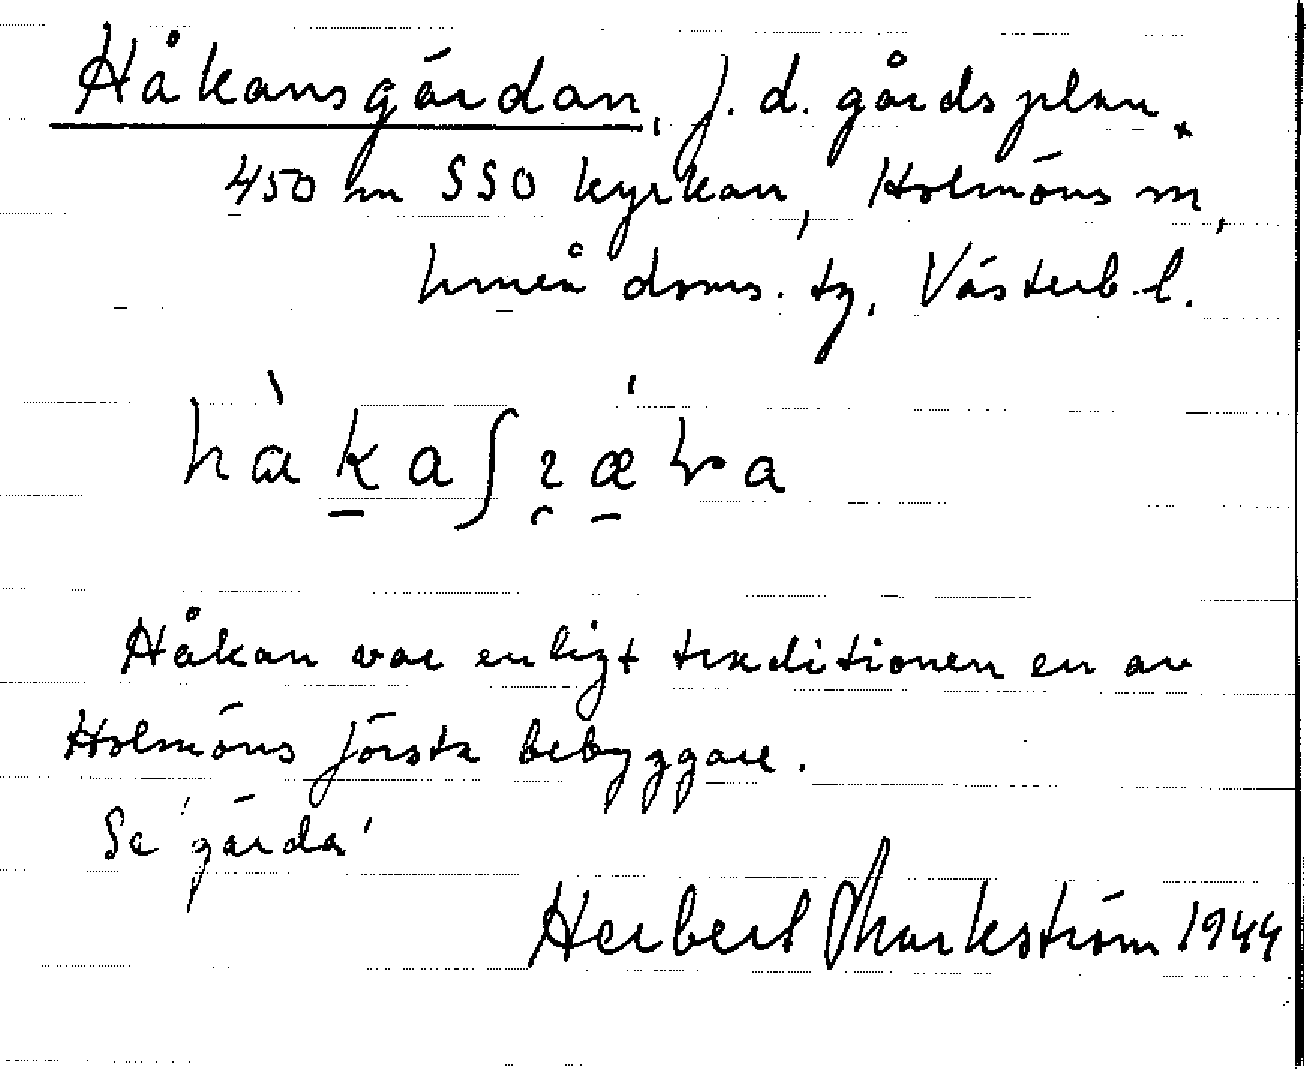 Håkansgärdan, f.d. gårdsplan
450 m SSO kyrkan, Holmöns sn,
Umeå doms. tg, Västerb. l.
Håkan var enligt traditionen en av
Holmöns första bebyggare.
Se 'gärda'
Herbert Markström 1944